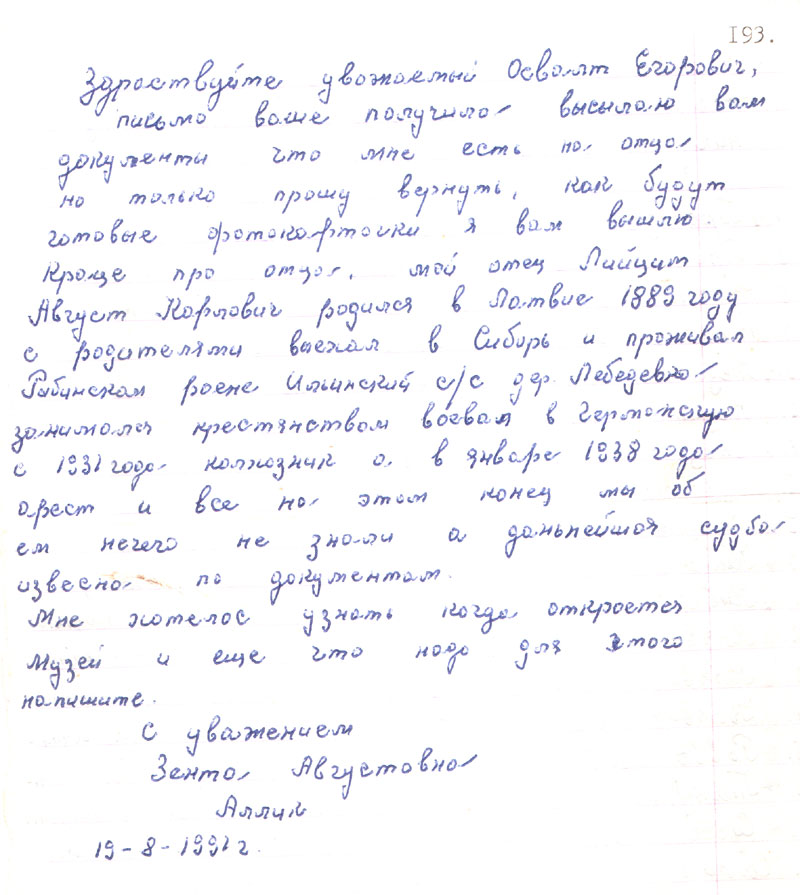 193.
Здраствуйте уважаемый Освалт Егорович,
письмо ваше получила высылаю вам
документы что мне есть на отца
но только прошу вернуть, как будут
готовые фотокарточки я вам вышлю.
Кроще про отца, мой отец Лийцит
Август Карлович родился в Латвие 1889 году
с родителями выехал в Сибирь и проживал
Рыбинском раене Ильинский с/с дер. Лебедевка
занимался крестянством воевал в Германскую
с 1931 года колхозник а в январе 1938 года
арест и все на этом конец мы об
ем нечего не знали а дальнейшая судба
извесна по документам.
Мне хотелос узнать когда откроется
музей и еще что надо для этого
напишите.
С уважением
Зента Августовна
Аллик
19-8-1991 г.